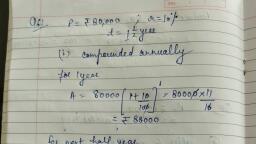 Q6). P = ₹80,000 ; r = 10%
t = 1 1/2 year
(i) compounded annually
for 1 year
A = 80000 [1 + 10/100]^1 = 80000 × 11/10
= ₹ 88000
for next half year